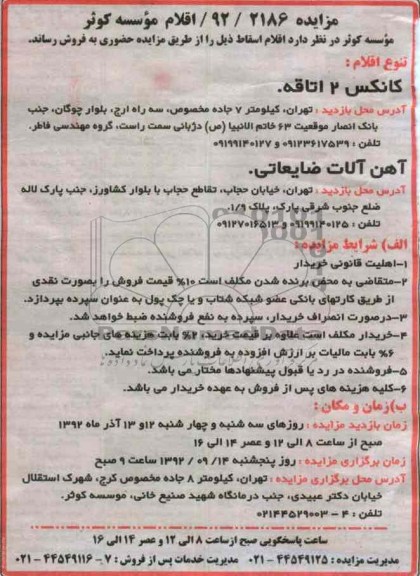 مزایده ۲۱۸۶ / ۹۲/ اقلام مؤسسه کوثر
مؤسسه کوثر در نظر دارد اقلام اسقاط ذیل را از طریق مزایده حضوری به فروش رساند.
تنوع اقلام :
کانکس ۲ اتاقه.
آدرس محل بازدید : تهران، کیلومتر ۷ جاده مخصوص، سه راه ارج، بلوار چوگان، جنب
بانک انصار موقعیت ۶۳ خاتم الانبیا (ص) دژبانی سمت راست، گروه مهندسی فاطر.
تلفن : ۰۹۱۲۳۶۱۷۵۳۹ و ۰۹۱۹۹۱۴۰۱۲۷
آهن آلات ضایعاتی.
آدرس محل بازدید : تهران، خیابان حجاب، تقاطع حجاب با بلوار کشاورز، جنب پارک لاله
ضلع جنوب شرقی پارک، پلاک ۱/۹.
تلفن : ۰۹۱۹۹۱۴۰۱۲۵ و ۰۹۱۲۷۰۱۶۵۱۳
الف) شرایط مزایده :
۱-اهلیت قانونی خریدار
۲-متقاضی به محض برنده شدن مکلف است ۱۰% قیمت فروش را بصورت نقدی
از طریق کارتهای بانکی عضو شبکه شتاب و یا چک پول به عنوان سپرده بپردازد.
۳-درصورت انصراف خریدار، سپرده به نفع فروشنده ضبط خواهد شد.
۴-خریدار مکلف است علاوه بر قیمت خرید ۲% بابت هزینه های جانبی مزایده و
۶% بابت مالیات بر ارزش افزوده به فروشنده پرداخت نماید.
۵-فروشنده در رد یا قبول پیشنهادها مختار می باشد.
۶-کلیه هزینه های پس از فروش به عهده خریدار می باشد.
ب)زمان و مکان :
زمان بازدید مزایده : روزهای سه شنبه و چهار شنبه ۱۲و ۱۳ آذر ماه ۱۳۹۲
صبح از ساعت ۸ الی ۱۲ و عصر ۱۴ الی ۱۶
زمان برگزاری مزایده : روز پنجشنبه ۱۴/ ۰۹ / ۱۳۹۲ ساعت ۹ صبح
آدرس محل برگزاری مزایده : تهران، کیلومتر ۸ جاده مخصوص کرج، شهرک استقلال
خیابان دکتر عبیدی، جنب درمانگاه شهید صنیع خانی، موسسه کوثر.
تلفن : ۴ – ۰۲۱۴۴۵۲۹۰۰۳
ساعت پاسخگویی صبح ازساعت ۸ الی ۱۲ و عصر ۱۴ الی ۱۶
مدیریت مزایده : ۴۴۵۴۹۱۲۵ - ۰۲۱ مدیریت خدمات پس از فروش : ۷ - ۴۴۵۴۹۱۱۶ - ۰۲۱